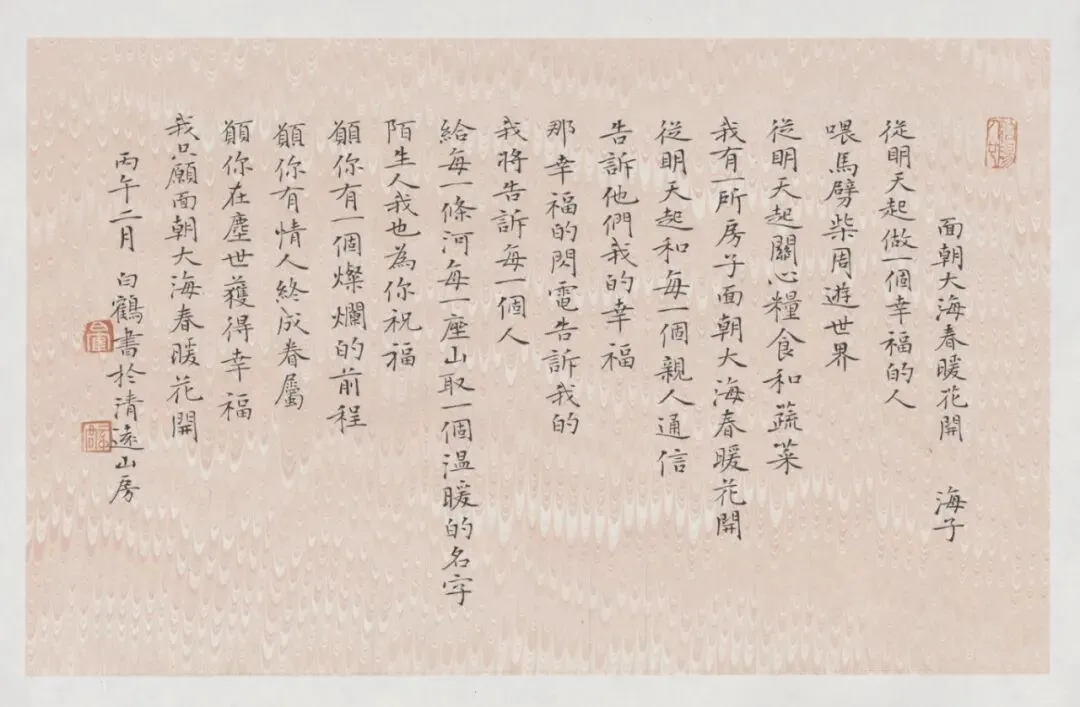 面朝大海春暖花開 海子
從明天起做一個幸福的人
喂馬劈柴周遊世界
從明天起關心糧食和蔬菜
我有一所房子面朝大海春暖花開
從明天起和每一個親人通信
告訴他們我的幸福
那幸福的閃電告訴我的
我將告訴每一個人
給每一條河每一座山取一個温暖的名字
陌生人我也為你祝福
願你有一個燦爛的前程
願你有情人終成眷屬
願你在塵世獲得幸福
我只願面朝大海春暖花開
丙午二月 白鶴書於清遠山房